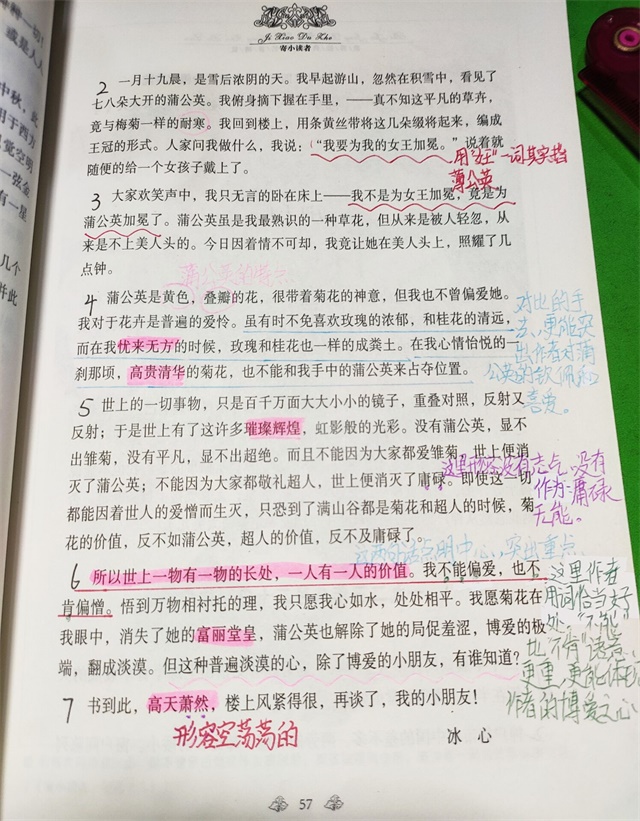 Ji Xiao Du Zhe
寄小读者
2 一月十九晨，是雪后浓阴的天。我早起游山，忽然在积雪中，看见了
七八朵大开的蒲公英。我俯身摘下握在手里，——真不知这平凡的草卉，
竟与梅菊一样的耐寒。我回到楼上，用条黄丝带将这几朵缀将起来，编成
王冠的形式。人家问我做什么，我说：“我要为我的女王加冕。”说着就
随便的给一个女孩子戴上了。
用“女王”一词其实指
蒲公英。
3 大家欢笑声中，我只无言的卧在床上——我不是为女王加冕，竟是为
蒲公英加冕了。蒲公英虽是我最熟识的一种草花，但从来是被人轻忽，从
来是不上美人头的。今日因着情不可却，我竟让她在美人头上，照耀了几
点钟。
蒲公英的特点
4 蒲公英是黄色，叠瓣的花，很带着菊花的神意，但我也不曾偏爱她。
我对于花卉是普遍的爱怜。虽有时不免喜欢玫瑰的浓郁，和桂花的清远，
而在我忧来无方的时候，玫瑰和桂花也一样的成粪土。在我心情怡悦的一
刹那顷，高贵清华的菊花，也不能和我手中的蒲公英来占夺位置。
对比的手
法，更能突
出作者对蒲
公英的钦佩和
喜爱。
5 世上的一切事物，只是百千万面大大小小的镜子，重叠对照，反射又
反射；于是世上有了这许多璀璨辉煌，虹影般的光彩。没有蒲公英，显不
出雏菊，没有平凡，显不出超绝。而且不能因为大家都爱雏菊，世上便消
灭了蒲公英；不能因为大家都敬礼超人，世上便消灭了庸碌。即使这一切
都能因着世人的爱憎而生灭，只恐到了满山谷都是菊花和超人的时候，菊
花的价值，反不如蒲公英，超人的价值，反不及庸碌了。
这里形容没有志气，没有
作为，庸碌
无能。
这两句话点明中心，突出重点
6 所以世上一物有一物的长处，一人有一人的价值。我不能偏爱，也不
肯偏憎。悟到万物相衬托的理，我只愿我心如水，处处相平。我愿菊花在
我眼中，消失了她的富丽堂皇，蒲公英也解除了她的局促羞涩，博爱的极
端，翻成淡漠。但这种普遍淡漠的心，除了博爱的小朋友，有谁知道？
这里作者
用词恰当好
处。“不能”
比“不肯”语意
更重，更能体现
作者的博爱之心
7 书到此，高天萧然，楼上风紧得很，再谈了，我的小朋友！
形容空荡荡的
冰 心
57